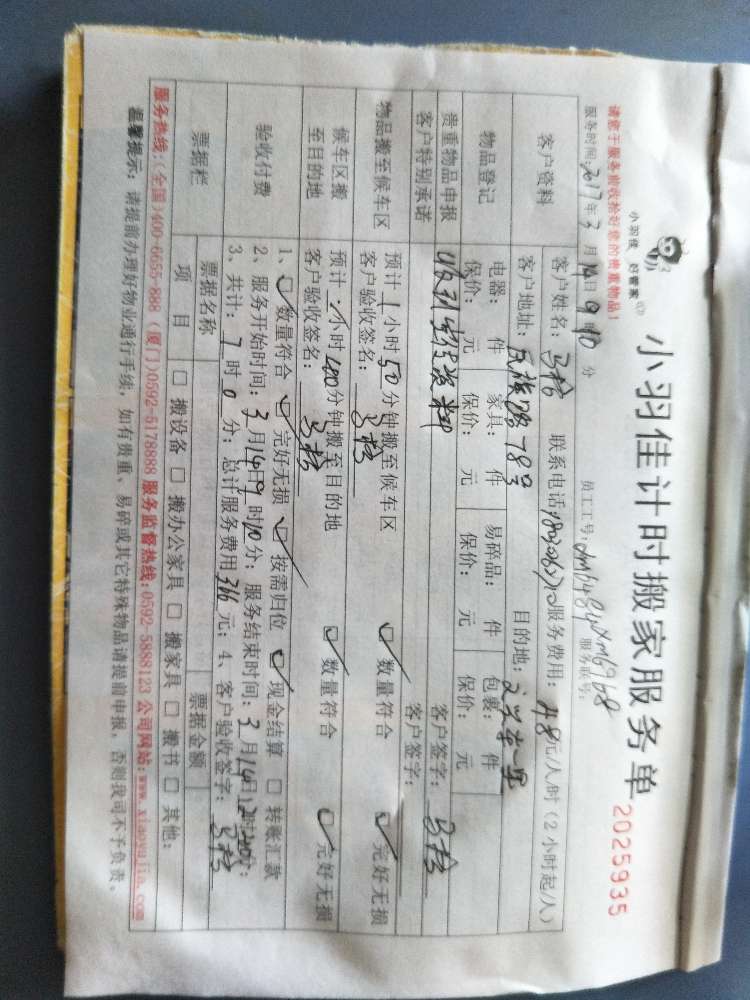 小羽佳 好管家
小羽佳计时搬家服务单
2025935
请您于服务前收拾好您的贵重物品！
服务时间：2017年3月14日9时10分 员工工号： 服务联号：
客户资料
客户姓名：马杉 联系电话： 服务费用：48元/人/时（2小时起/人）
客户地址：民族路78号 目的地：
物品登记
电器： 件 家具： 件 易碎品： 件 包裹： 件
保价： 元 保价： 元 保价： 元 保价： 元
贵重物品申报
客户特别承诺
客户签字：马杉
客户签字：
物品搬至候车区
预计1小时50分钟搬至候车区 数量符合 完好无损
客户验收签名：马杉
候车区搬
至目的地
预计 小时 分钟搬至目的地 数量符合 完好无损
客户验收签名：马杉
验收付费
1、 数量符合 完好无损 按需归位 现金结算 转账汇款
2、服务开始时间：3月14日9时10分；服务结束时间：3月14日12时 分；
3、共计：7时0分；总计服务费用366元；4、客户验收签字：马杉
票据栏
票据名称 票据金额
项目 搬设备 搬办公家具 搬家具 搬书 其他：
服务热线：（全国）400-6655-888（厦门）0592-5178888 服务监督热线：0592-5888123 公司网站：www.xiaoyujia.com
温馨提示：请提前办理好物业通行手续，如有贵重、易碎或其它特殊物品请提前申报，否则我司不予负责。